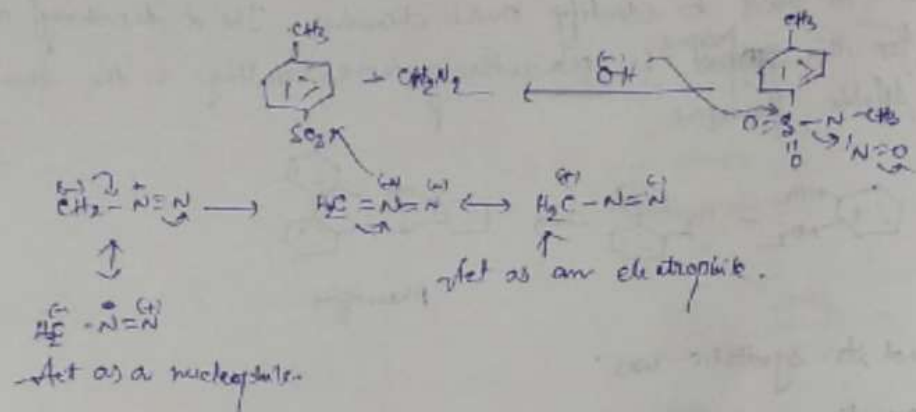 CH3 CH3
+ CH2N2 (-)OH
SO2K O=S-N-CH3
O N=O
(-)CH2-N(+)=N → H2C=N(+)=N(-) ↔ H2C(+)-N=N(-)
Act as an electrophile.
H2C(-)-N=N(+)
Act as a nucleophile.